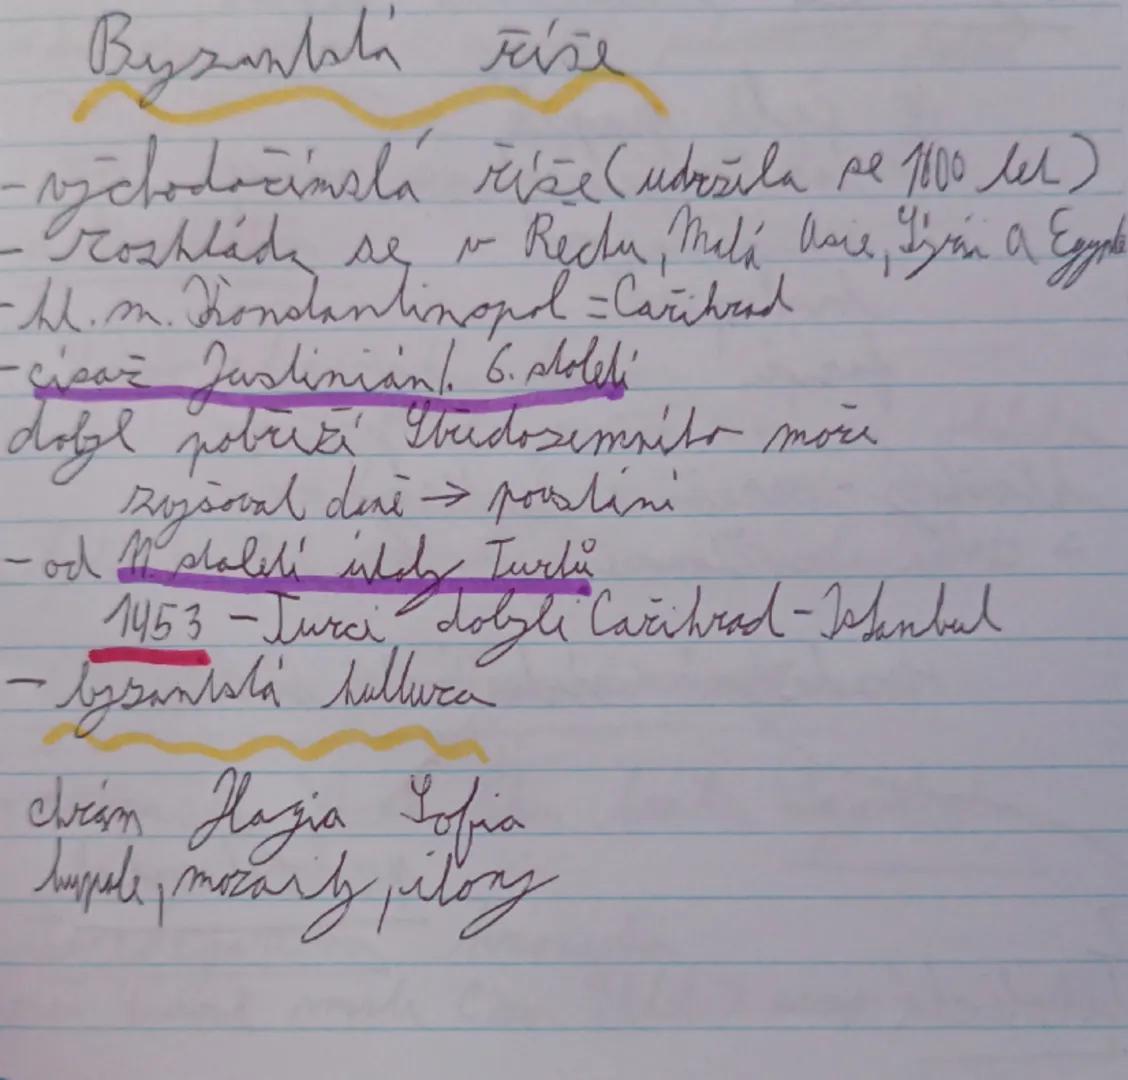 Byzantská říše
- východořímská říše (udržela se 1000 let)
- rozkládá se v Řecku, Malá Asie, Sýrii a Egyptě
- hl. m. Konstantinopol = Cařihrad
- císař Justinián I. 6. století
dobyl pobřeží Středozemního moře
zvyšoval daně → povstání
- od 11. století útoky Turků
1453 - Turci dobyli Cařihrad - Istanbul
- byzantská kultura
chrám Hagia Sofia
kupole, mozaiky, ikony